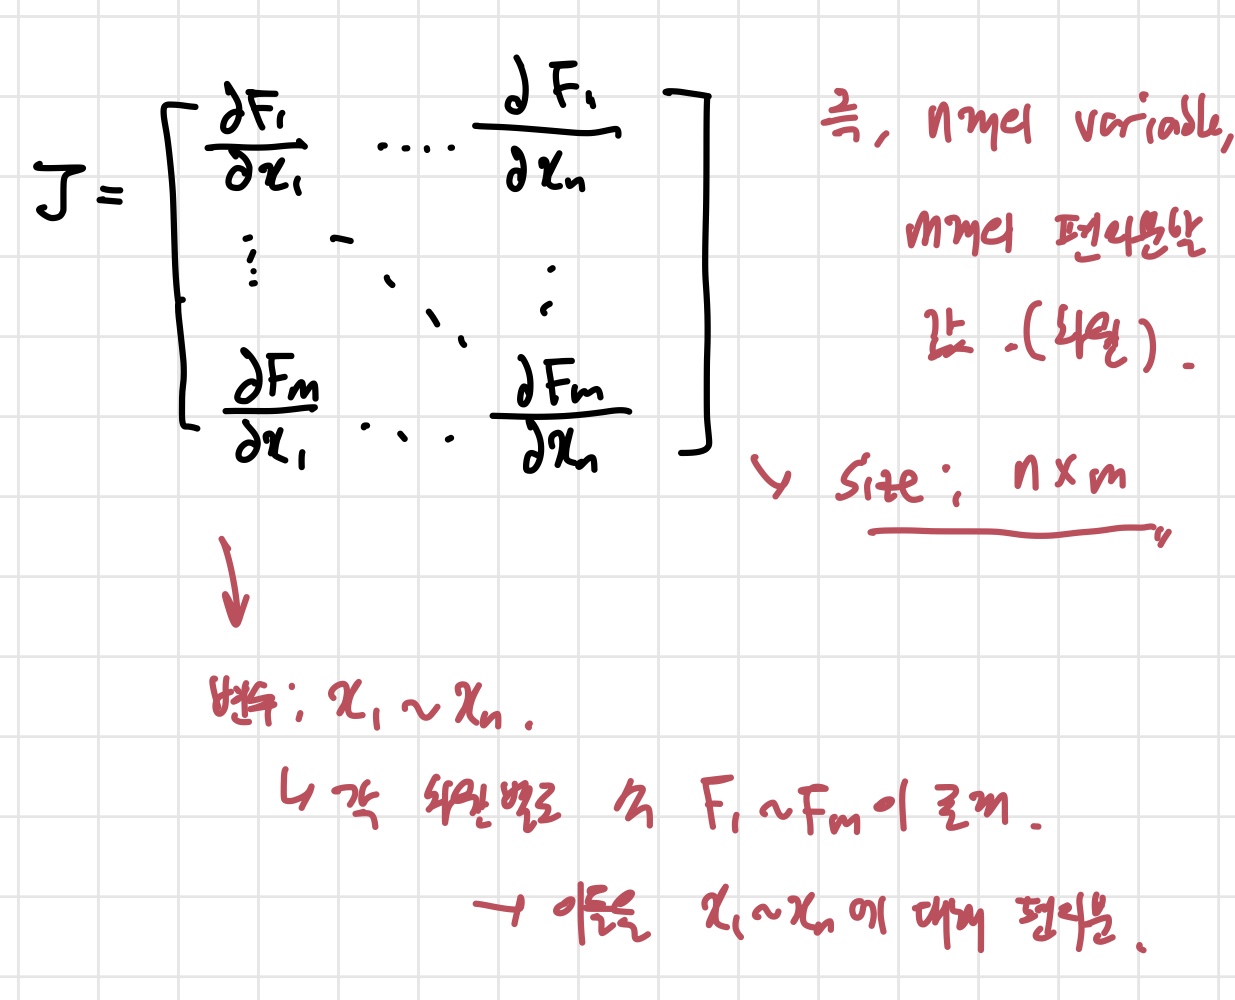 J = [ ∂F₁/∂x₁ .... ∂F₁/∂xₙ
⋮ ⋱ ⋮
∂Fₘ/∂x₁ ... ∂Fₘ/∂xₙ ]
즉, n개의 variable,
m개의 편미분할
값. (차원).
↘ size: n×m
↓
변수: x₁ ~ xₙ.
↳ 각 차원별로 즉 F₁~Fₘ이 로
→ 이들을 x₁~xₙ에 대해 편미분.